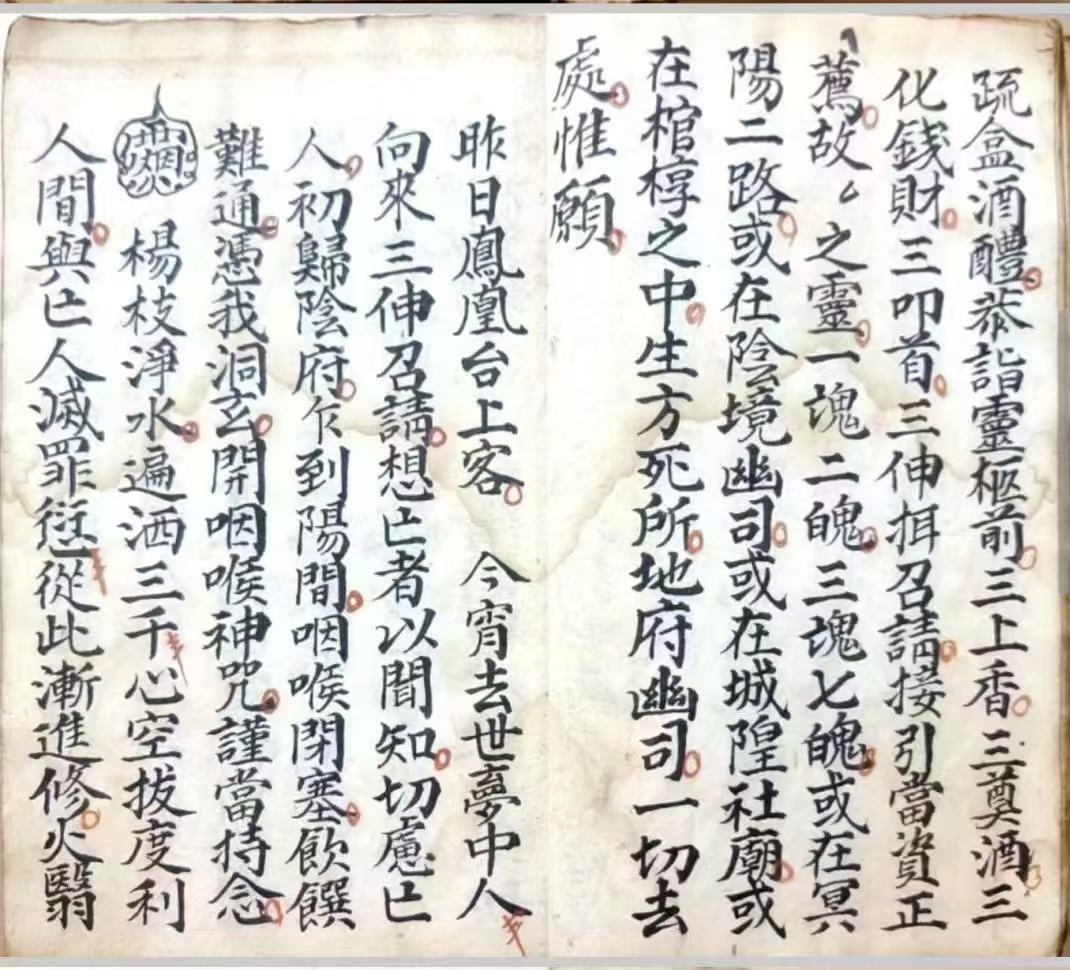 疏盒酒醴恭詣靈柩前三上香三奠酒三
化錢財三叩首三伸拜召請接引當資正
薦故〻之靈一塊二魄三塊七魄或在冥
陽二路或在陰境幽司或在城隍社廟或
在棺椁之中生方死所地府幽司一切去
處惟願
昨日鳳凰台上客 今宵去世夢中人
向來三伸召請想亡者以聞知切慮亡
人初歸陰府乍到陽間咽喉閉塞飲饌
難通憑我洞玄開咽喉神咒謹當持念
楊枝淨水遍洒三千心空拔度利
人間與亡人滅罪愆從此漸進修火醫